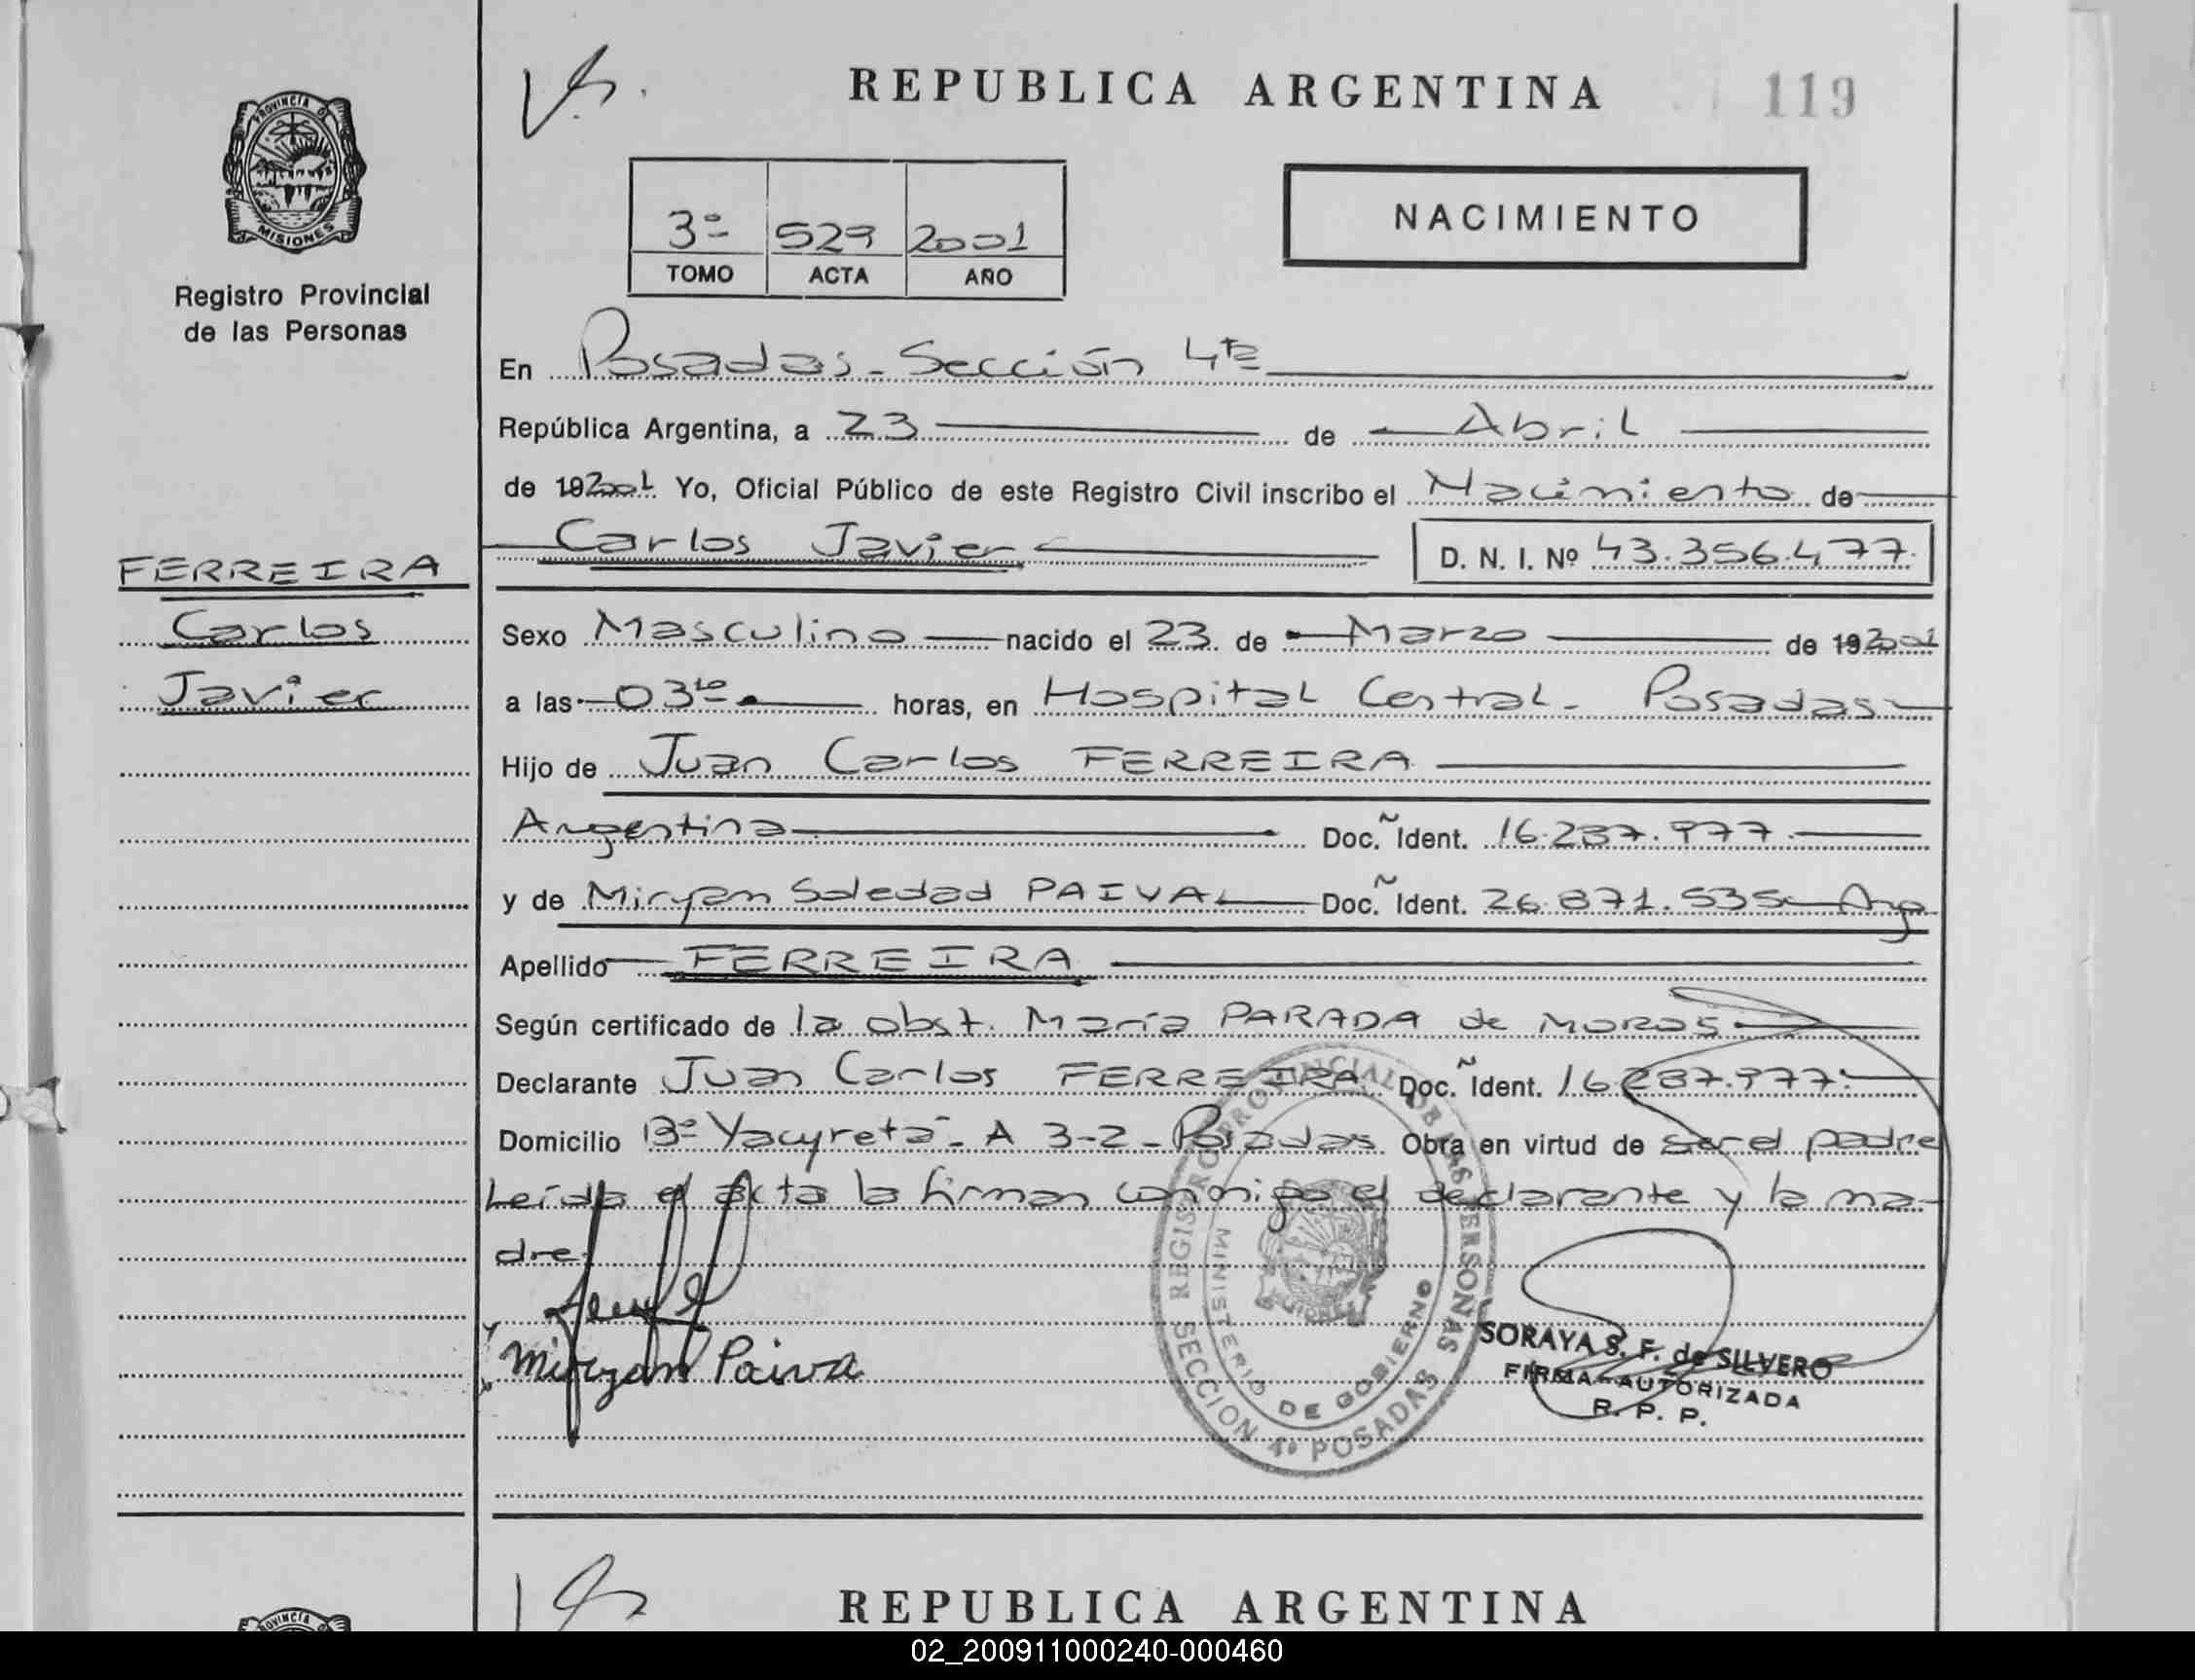 REPUBLICA ARGENTINA
119
PROVINCIA D
MISIONES
Registro Provincial
de las Personas
3º 529 2001
TOMO ACTA AÑO
NACIMIENTO
En Posadas - Sección 4ta
República Argentina, a 23 de Abril
de 192001 Yo, Oficial Público de este Registro Civil inscribo el Nacimiento de
Carlos Javier D. N. I. Nº 43.356.477.
FERREIRA
Carlos
Javier
Sexo Masculino nacido el 23 de Marzo de 192001
a las 03 horas, en Hospital Central - Posadas
Hijo de Juan Carlos FERREIRA
Argentina Doc. Ident. 16.237.977.
y de Miryam Soledad PAIVA Doc. Ident. 26.871.535 Arg
Apellido FERREIRA
Según certificado de la obst. María PARADA de MOROS
Declarante Juan Carlos FERREIRA Doc. Ident. 16.237.977.
Domicilio Bº Yacyreta - A 3-2 - Posadas Obra en virtud de ser el padre
Leída el acta la firman conmigo el declarante y la ma-
dre.
Miryam Paiva
REGISTRO PROVINCIAL DE LAS PERSONAS
MINISTERIO DE GOBIERNO
SECCION 4º POSADAS
SORAYA S. F. de SILVERO
FIRMA AUTORIZADA
R. P. P.
REPUBLICA ARGENTINA
PROVINCIA
02_200911000240-000460